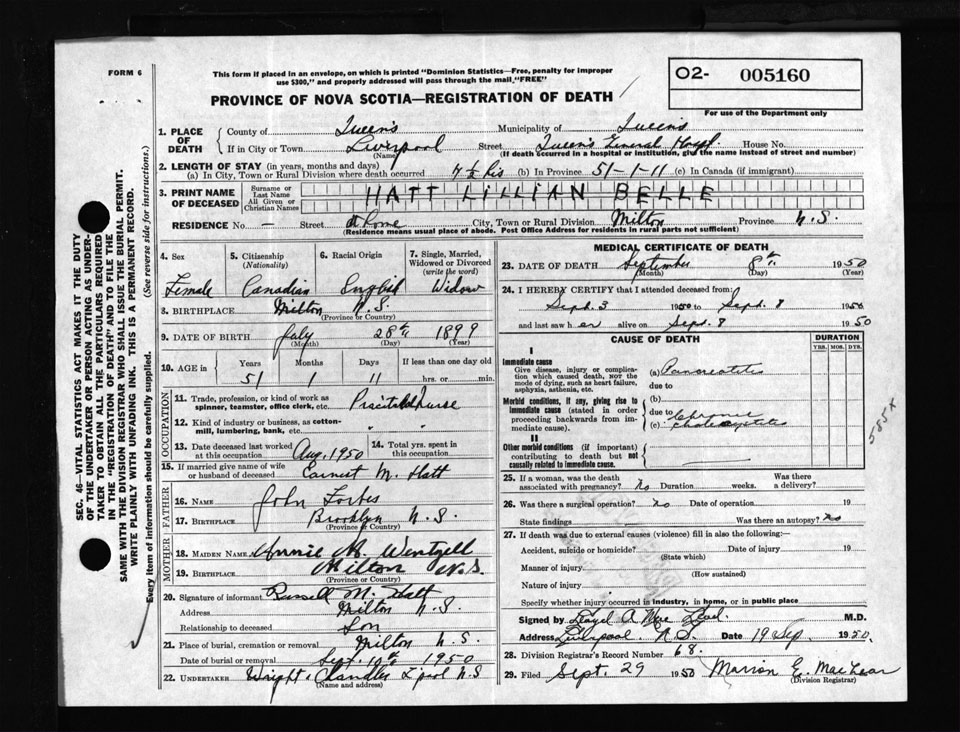 FORM 6
This form if placed in an envelope, on which is printed "Dominion Statistics—Free, penalty for improper
use $300," and properly addressed will pass through the mail, "FREE"
O2- 005160
For use of the Department only
PROVINCE OF NOVA SCOTIA—REGISTRATION OF DEATH
1. PLACE OF DEATH { County of Queen's Municipality of Queens
If in City or Town Liverpool (Name) Street Queen's General Hosp. House No.
(If death occurred in a hospital or institution, give the name instead of street and number)
2. LENGTH OF STAY (in years, months and days)
(a) In City, Town or Rural Division where death occurred (b) In Province 51-1-11 (c) In Canada (if immigrant)
3. PRINT NAME OF DECEASED { Surname or Last Name
All Given or Christian Names
HATT LILLIAN BELLE
RESIDENCE No. — Street at home City, Town or Rural Division Milton Province N.S.
(Residence means usual place of abode. Post Office Address for residents in rural parts not sufficient)
4. Sex Female
5. Citizenship (Nationality) Canadian
6. Racial Origin English
7. Single, Married, Widowed or Divorced (write the word) Widow
8. BIRTHPLACE Milton N.S.
(Province or Country)
9. DATE OF BIRTH July 28th 1899
(Month) (Day) (Year)
10. AGE in { Years 51 Months 1 Days 11 If less than one day old hrs. or min.
OCCUPATION
11. Trade, profession, or kind of work as spinner, teamster, office clerk, etc. Practical nurse
12. Kind of industry or business, as cotton-mill, lumbering, bank, etc. " "
13. Date deceased last worked at this occupation Aug. 1950
14. Total yrs. spent in this occupation
15. If married give name of wife or husband of deceased Earnest M. Hatt
FATHER
16. NAME John Forbes
17. BIRTHPLACE Brooklyn N.S.
(Province or Country)
MOTHER
18. MAIDEN NAME Annie M. Wentzell
19. BIRTHPLACE Milton N.S.
(Province or Country)
20. Signature of informant Russell M. Hatt
Address Milton N.S.
Relationship to deceased Son
21. Place of burial, cremation or removal Milton N.S.
Date of burial or removal Sept. 10th 1950
22. UNDERTAKER Wright & Chandler L'pool N.S
(Name and address)
MEDICAL CERTIFICATE OF DEATH
23. DATE OF DEATH September 8th 1950
(Month) (Day) (Year)
24. I HEREBY CERTIFY that I attended deceased from:
Sept. 3 1950 to Sept. 8 1950
and last saw her alive on Sept. 8 1950
CAUSE OF DEATH
DURATION
YRS. MOS. DYS.
I
Immediate cause
Give disease, injury or complication which caused death, NOT the mode of dying, such as heart failure, asphyxia, asthenia, etc.
(a) Pancreatitis
due to
Morbid conditions, if any, giving rise to immediate cause (stated in order proceeding backwards from immediate cause).
(b)
due to Chronic
(c) cholecystitis
585x
II
Other morbid conditions (if important) contributing to death but not causally related to immediate cause.
25. If a woman, was the death associated with pregnancy? No Duration weeks. Was there a delivery?
26. Was there a surgical operation? No Date of operation 19
State findings — Was there an autopsy? No
27. If death was due to external causes (violence) fill in also the following:—
Accident, suicide or homicide? Date of injury 19
(State which)
Manner of injury
(How sustained)
Nature of injury
Specify whether injury occurred in industry, in home, or in public place
Signed by M.D.
Address Liverpool, N.S. Date 19 Sep. 1950.
28. Division Registrar's Record Number 68.
29. Filed Sept. 29 1950 Marion E.
(Division Registrar)
SEC. 46—VITAL STATISTICS ACT MAKES IT THE DUTY
OF THE UNDERTAKER OR PERSON ACTING AS UNDER-
TAKER TO OBTAIN ALL THE PARTICULARS REQUIRED
IN THE "REGISTRATION OF DEATH" AND TO FILE THE
SAME WITH THE DIVISION REGISTRAR WHO SHALL ISSUE THE BURIAL PERMIT.
WRITE PLAINLY WITH UNFADING INK. THIS IS A PERMANENT RECORD.
Every item of information should be carefully supplied. (See reverse side for instructions.)